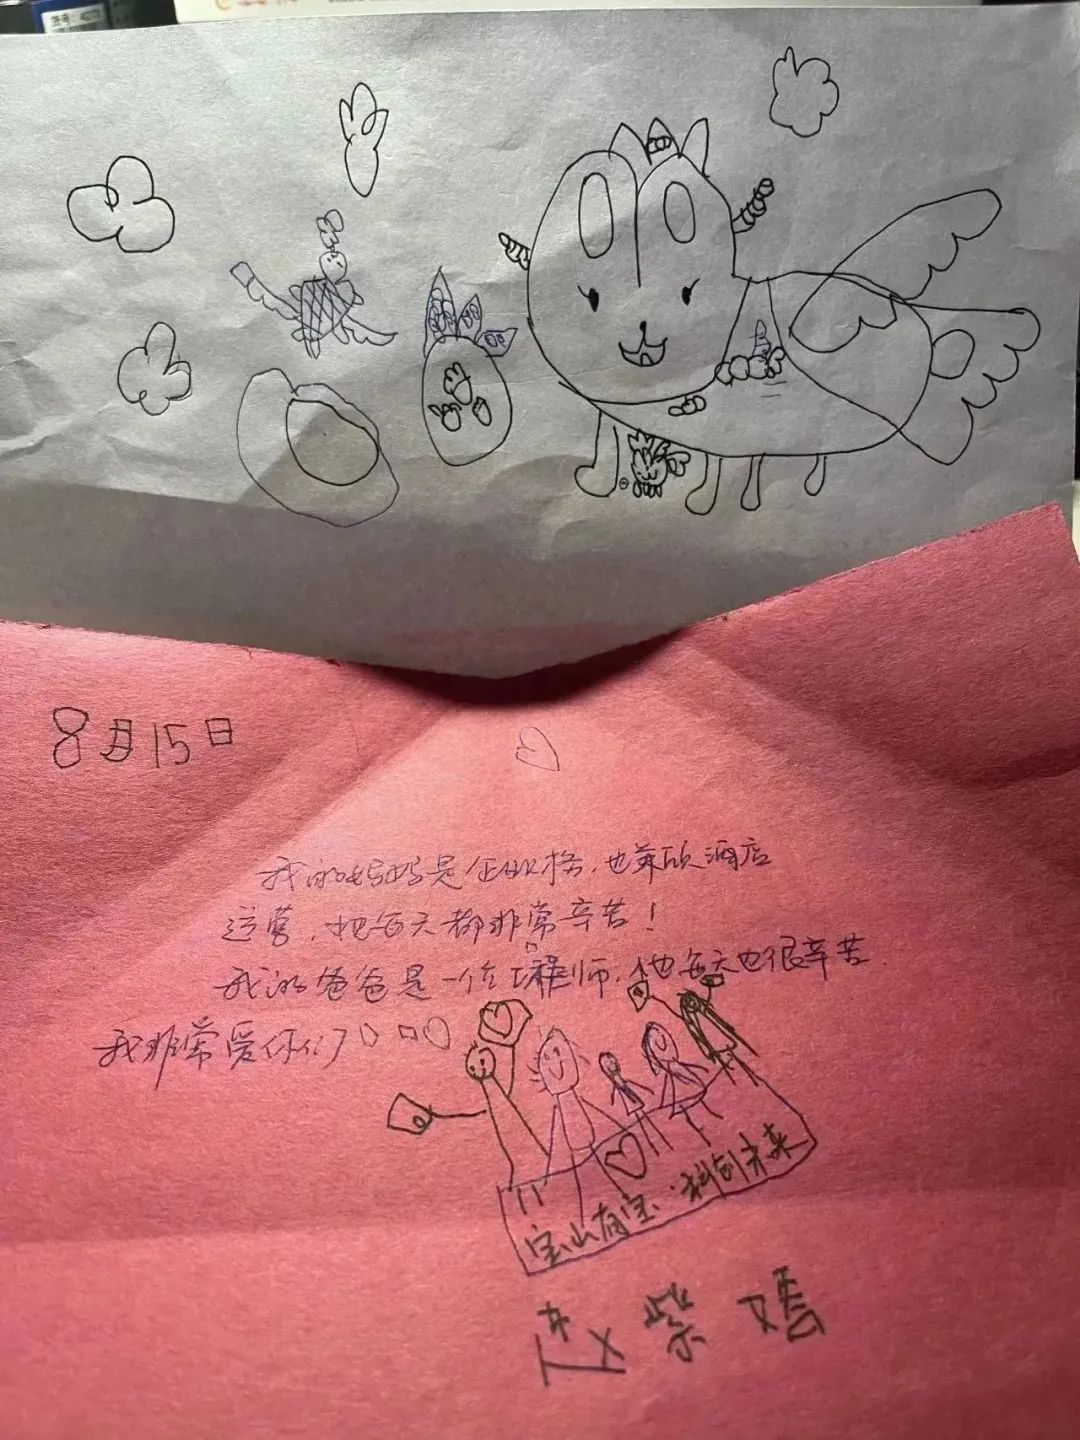 8月15日
我的妈妈是 也 酒店
运营，她每天都非常辛苦！
我的爸爸是一位工程师，他每天也很辛苦.
我非常爱你们
宝山有宝·科创未来
赵紫嬉